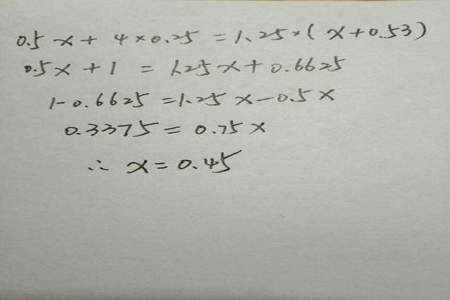 0.5x + 4×0.25 = 1.25×(x+0.53)
0.5x + 1 = 1.25x + 0.6625
1-0.6625 = 1.25x - 0.5x
0.3375 = 0.75x
∴ x = 0.45